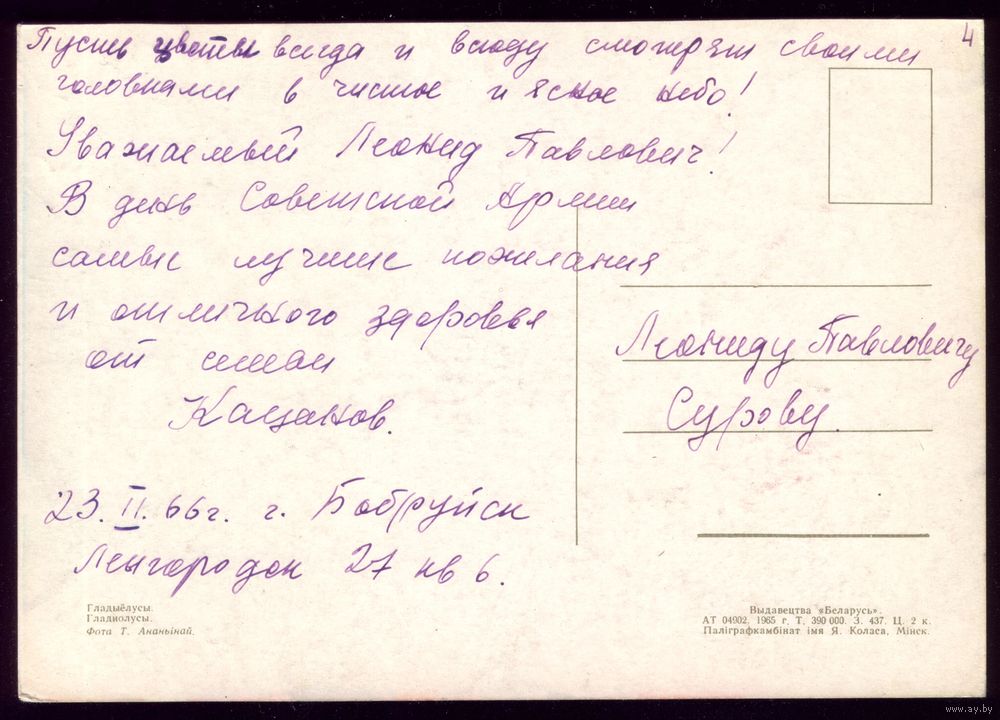 4
Пусть цветы всегда и всюду смотрят своими
головками в чистое и ясное небо!
Уважаемый Леонид Павлович!
В день Советской Армии
самые лучшие пожелания
и отличного здоровья
от семьи
Кацанов.
23. II. 66г. г. Бобруйск
Ленгородок 27 кв 6.
Леониду Павловичу
Сурову.
Гладыёлусы.
Гладиолусы.
Фота Т. Ананьінай.
Выдавецтва «Беларусь».
АТ 04902. 1965 г. Т. 390 000. З. 437. Ц. 2 к.
Паліграфкамбінат імя Я. Коласа, Мінск.
www.ay.by